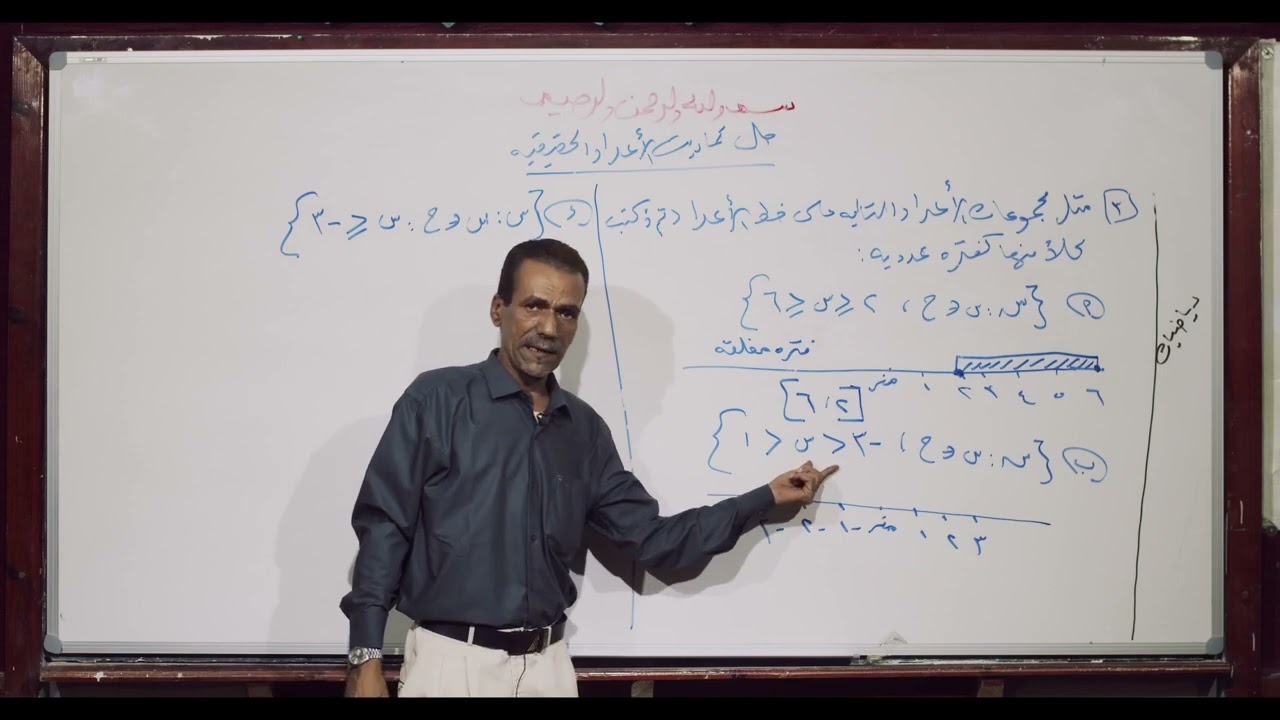 بسم الله الرحمن الرحيم
حل تمارين الأعداد الحقيقيه
رياضيات
[٢] مثل مجموعات الأعداد التاليه على خط الأعداد ثم اكتب
كلاً منها كفتره عدديه :
(أ) {س : س ∈ ح ، ٢ ≤ س ≤ ٦}
فتره مغلقه
٦ ٥ ٤ ٣ ٢ ١ صفر
[٢ ، ٦]
(ب) {س : س ∈ ح ، -٣ < س < ١}
٣ ٢ ١ صفر -١ -٢ -٣
{س : س ∈ ح : س ≥ -٣}